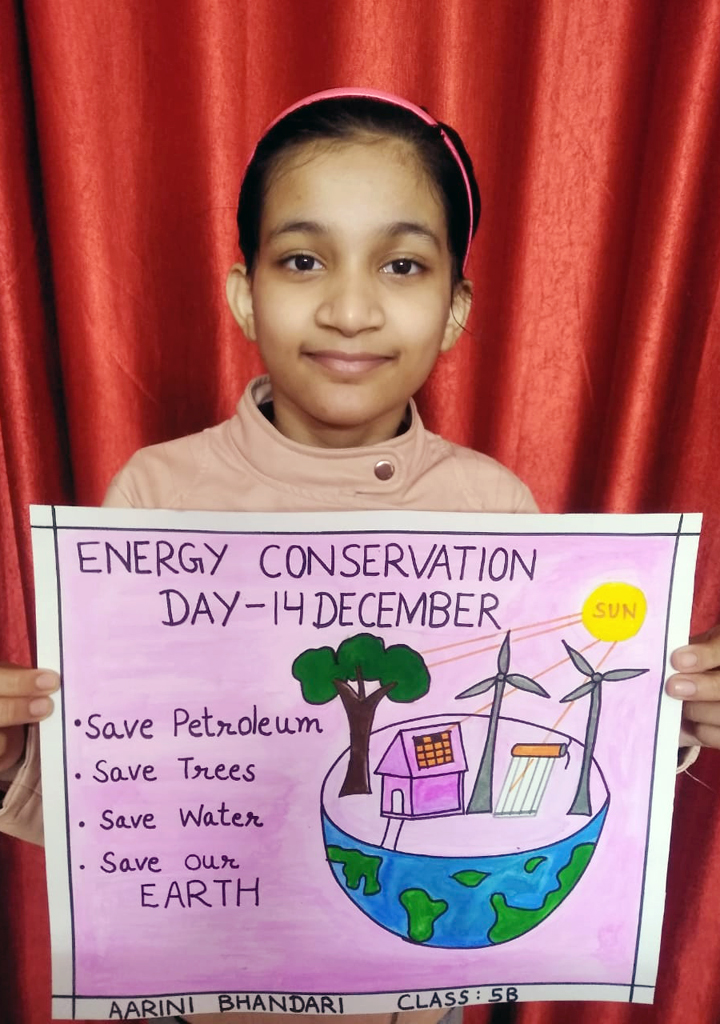 ENERGY CONSERVATION
DAY-14 DECEMBER
SUN
• Save Petroleum
• Save Trees
• Save Water
• Save our
EARTH
AARINI BHANDARI CLASS: 5B